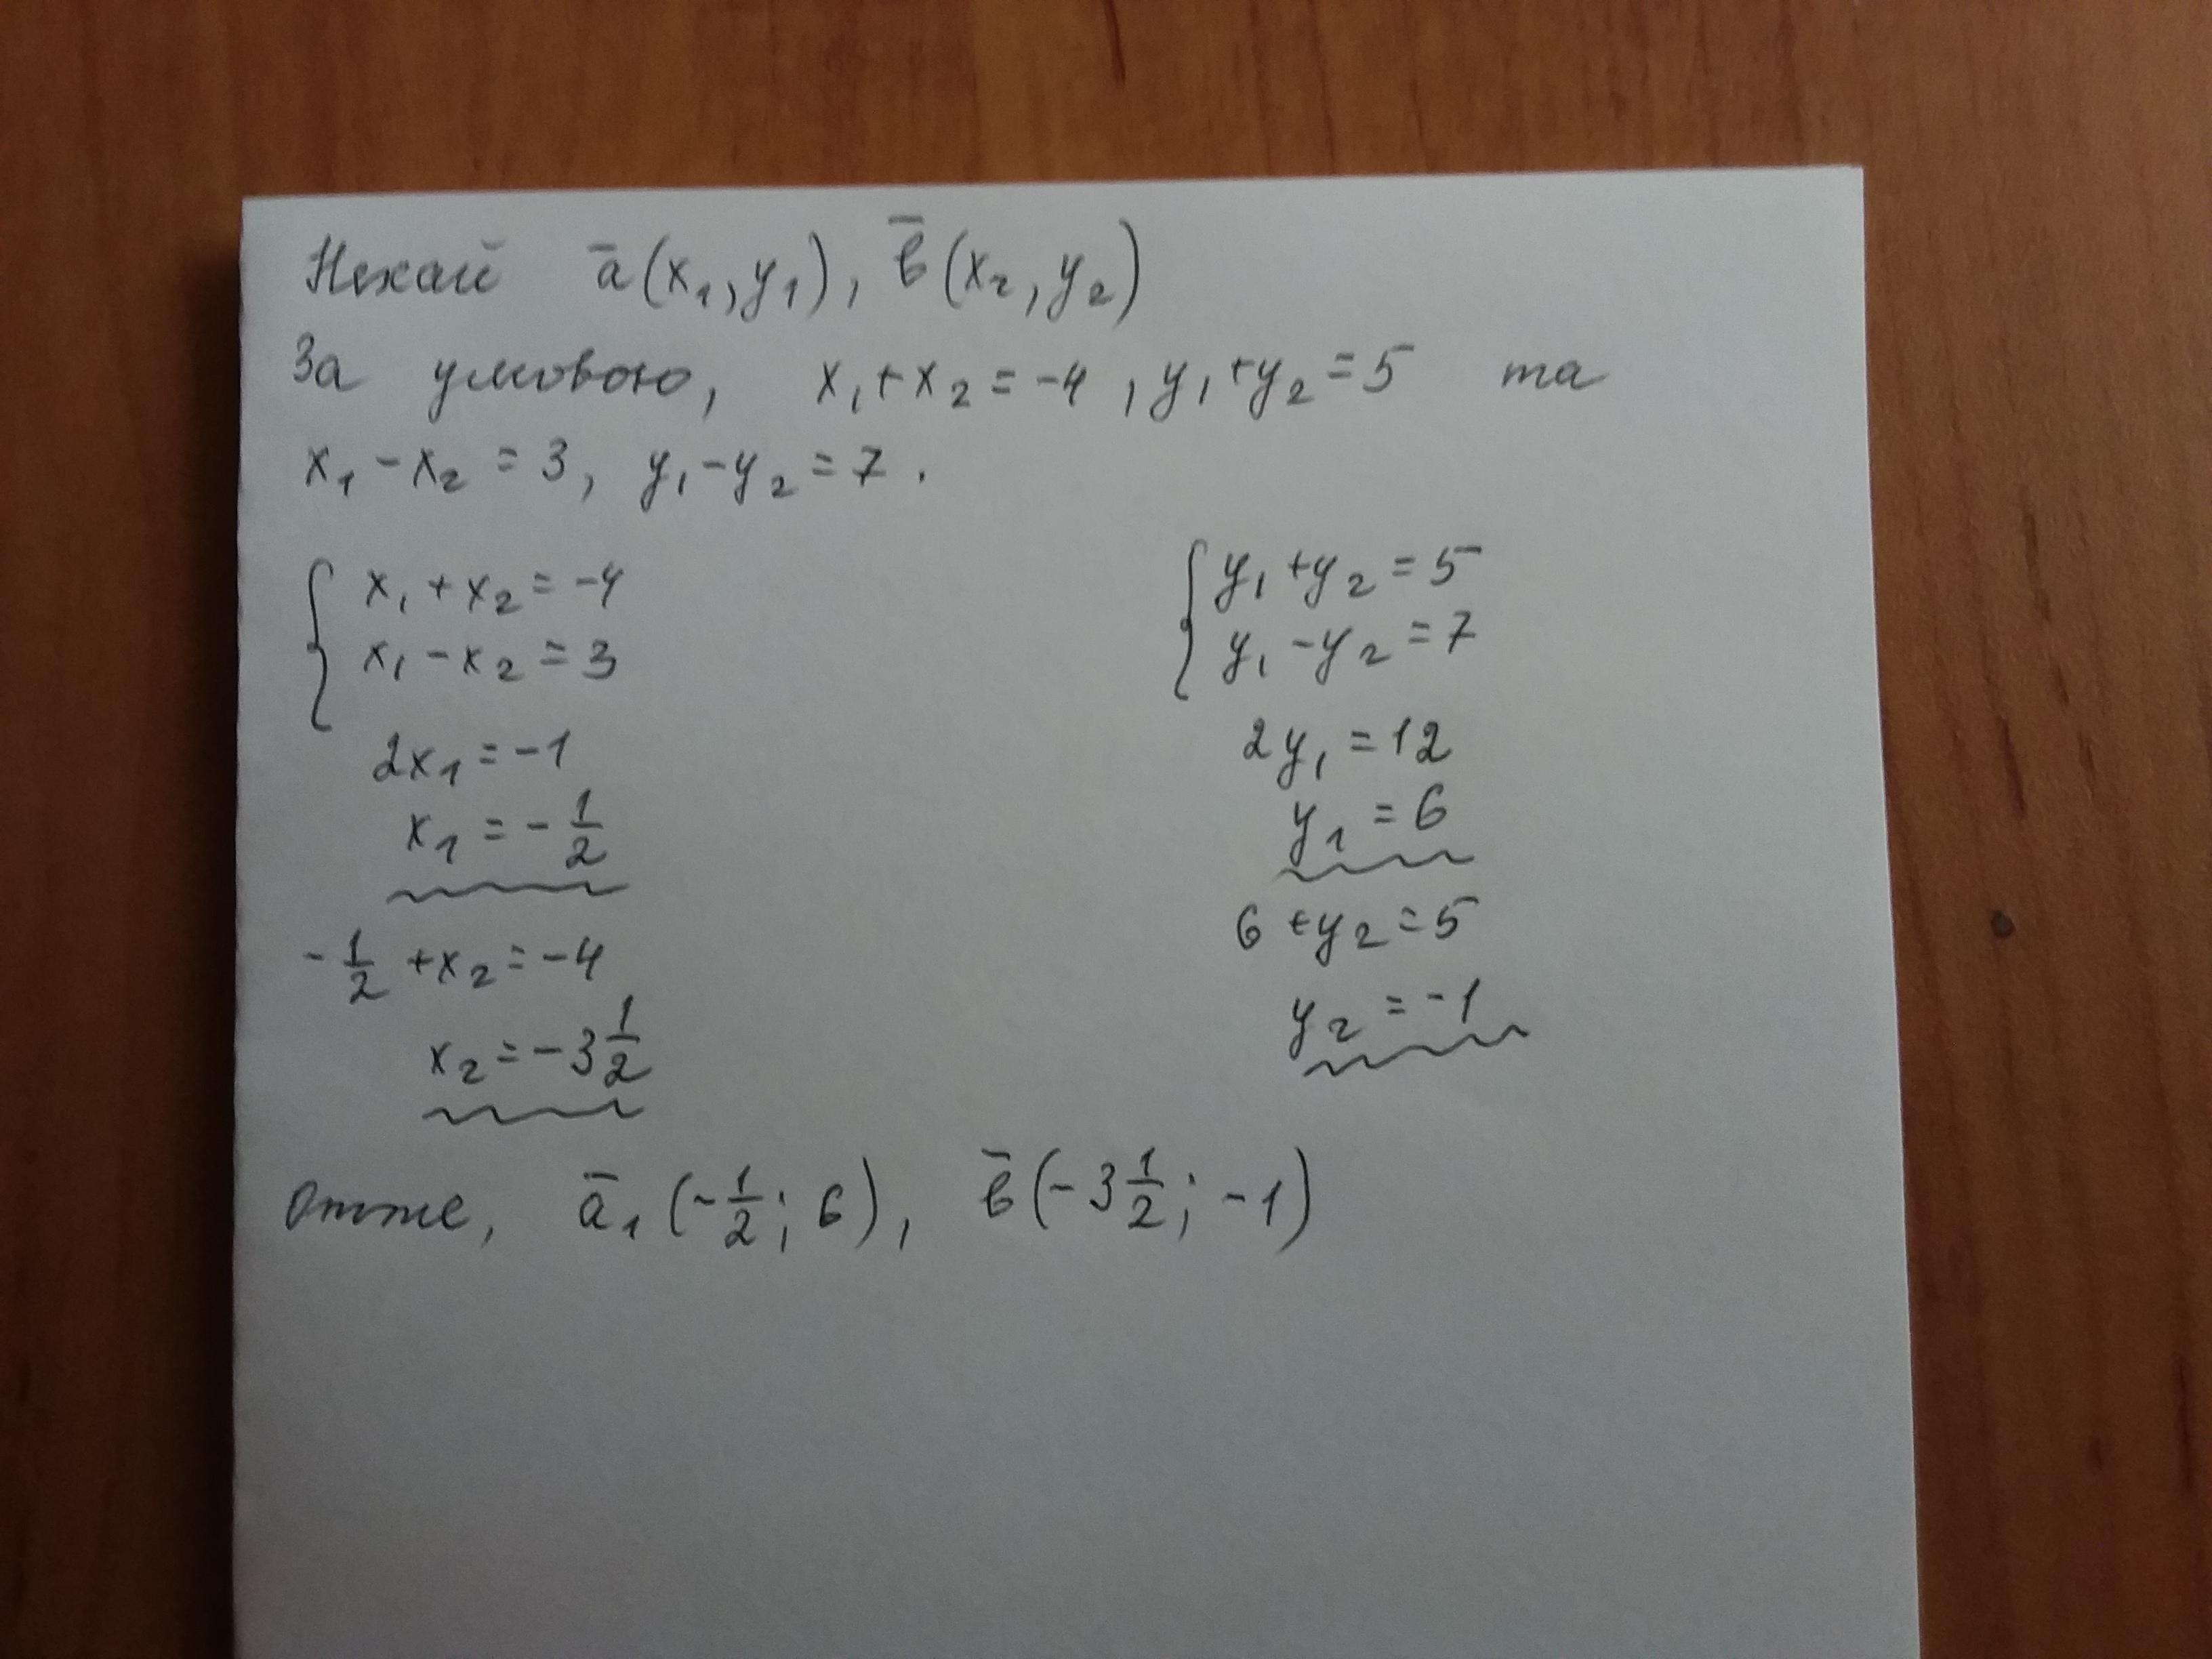 Нехай ā(x₁, y₁), b̄(x₂, y₂)
За умовою, x₁ + x₂ = -4, y₁ + y₂ = 5 та
x₁ - x₂ = 3, y₁ - y₂ = 7.
{ x₁ + x₂ = -4
x₁ - x₂ = 3
2x₁ = -1
x₁ = - 1/2
- 1/2 + x₂ = -4
x₂ = -3 1/2
{ y₁ + y₂ = 5
y₁ - y₂ = 7
2y₁ = 12
y₁ = 6
6 + y₂ = 5
y₂ = -1
Отже, ā₁ (- 1/2; 6), b̄ (-3 1/2; -1)